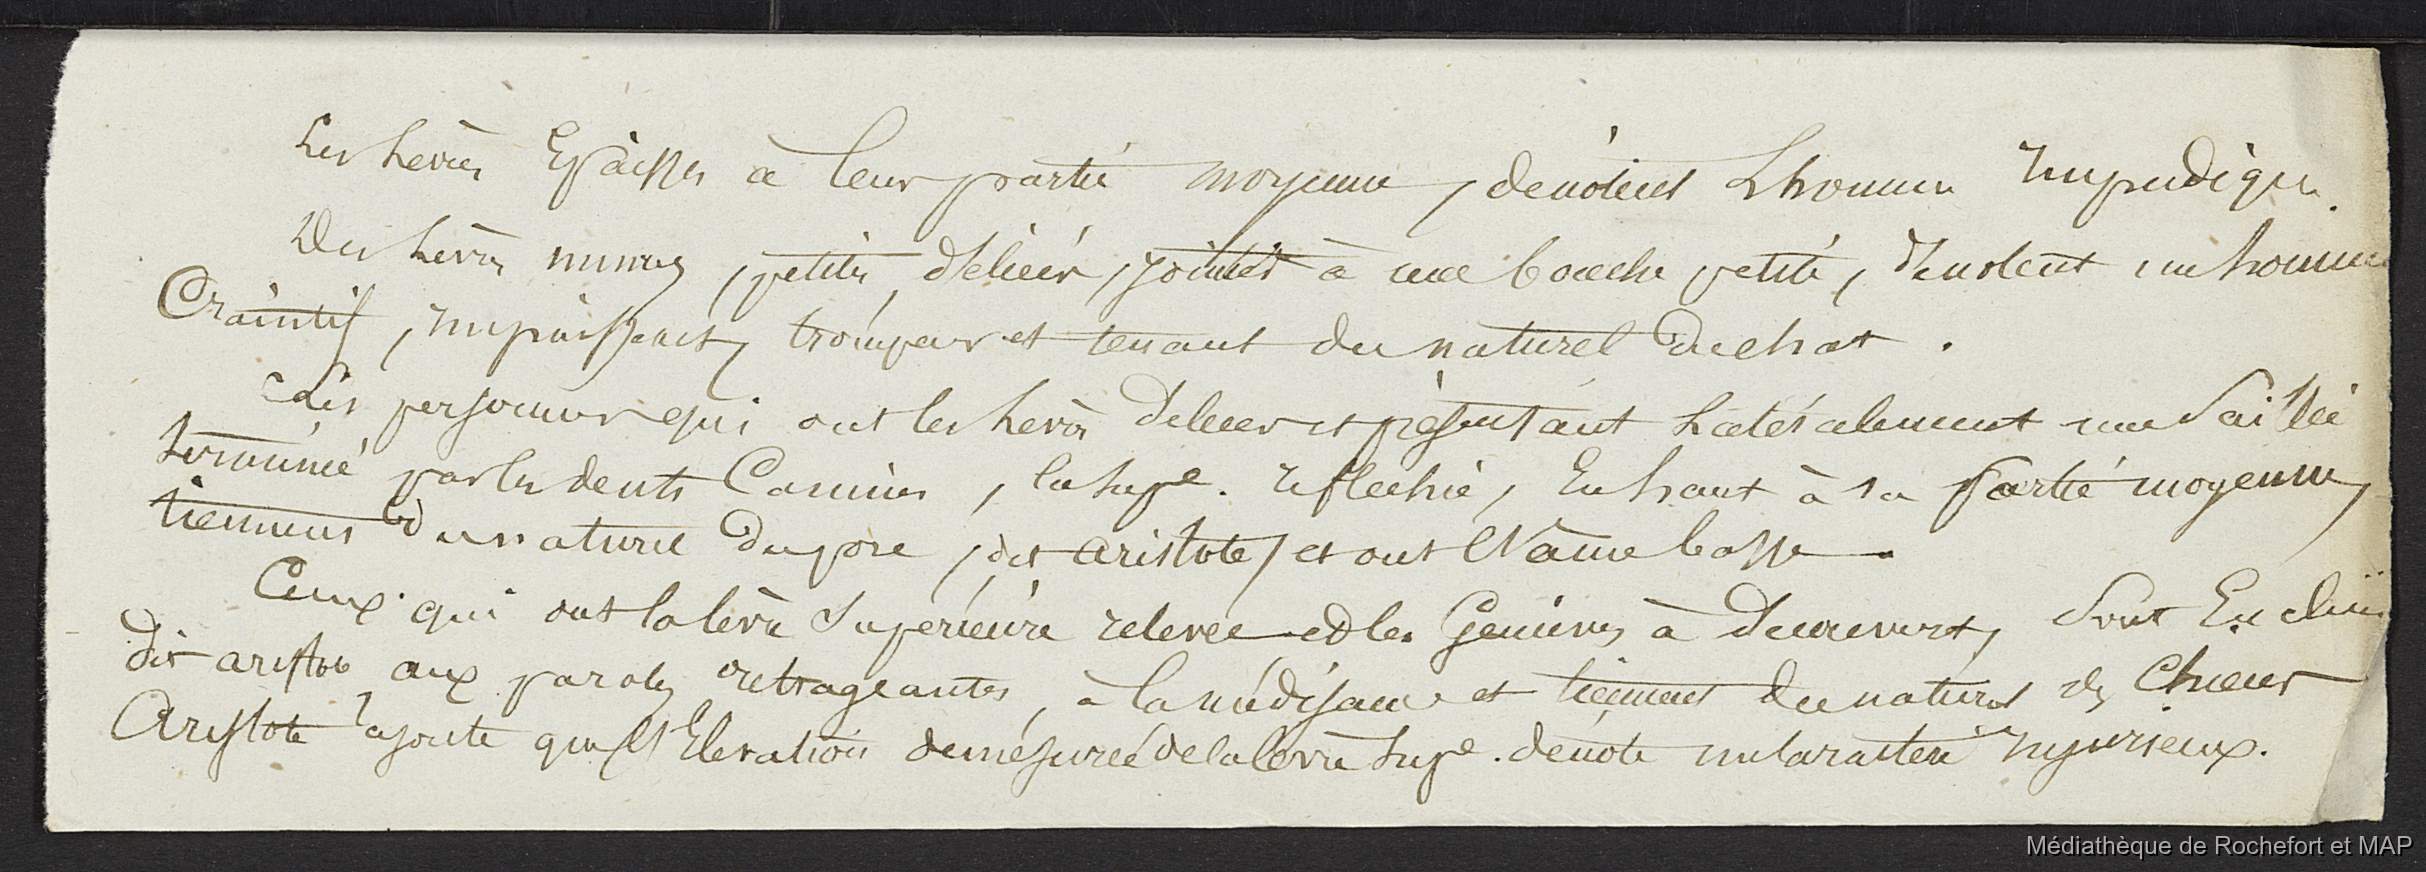 Les levres Epaisses à leur partie moyenne, denotent L'homme Impudique.
Des levres minces, petites, deliées, jointes à une bouche petite, denotent un homme
Craintif, impuissant, trompeur et tenant du naturel du chat.
Les personnes qui ont les levres deliees et presentant Latéralement une Saillie
terminée par les dents Canines, la supe. reflechie, En haut à sa partie moyenne,
tiennent du naturel du porc, dit aristote, et ont l'âme basse.
Ceux qui ont la lèvre Supérieure relevée et les Gencives à decouvert, Sont Enclins
dit aristote aux paroles outrageantes, à la médisance et tiennent du naturel des Chiens
Aristote ajoute que l'Elevation demésurée de la levre supe. dénote un caractere injurieux.
Médiathèque de Rochefort et MAP